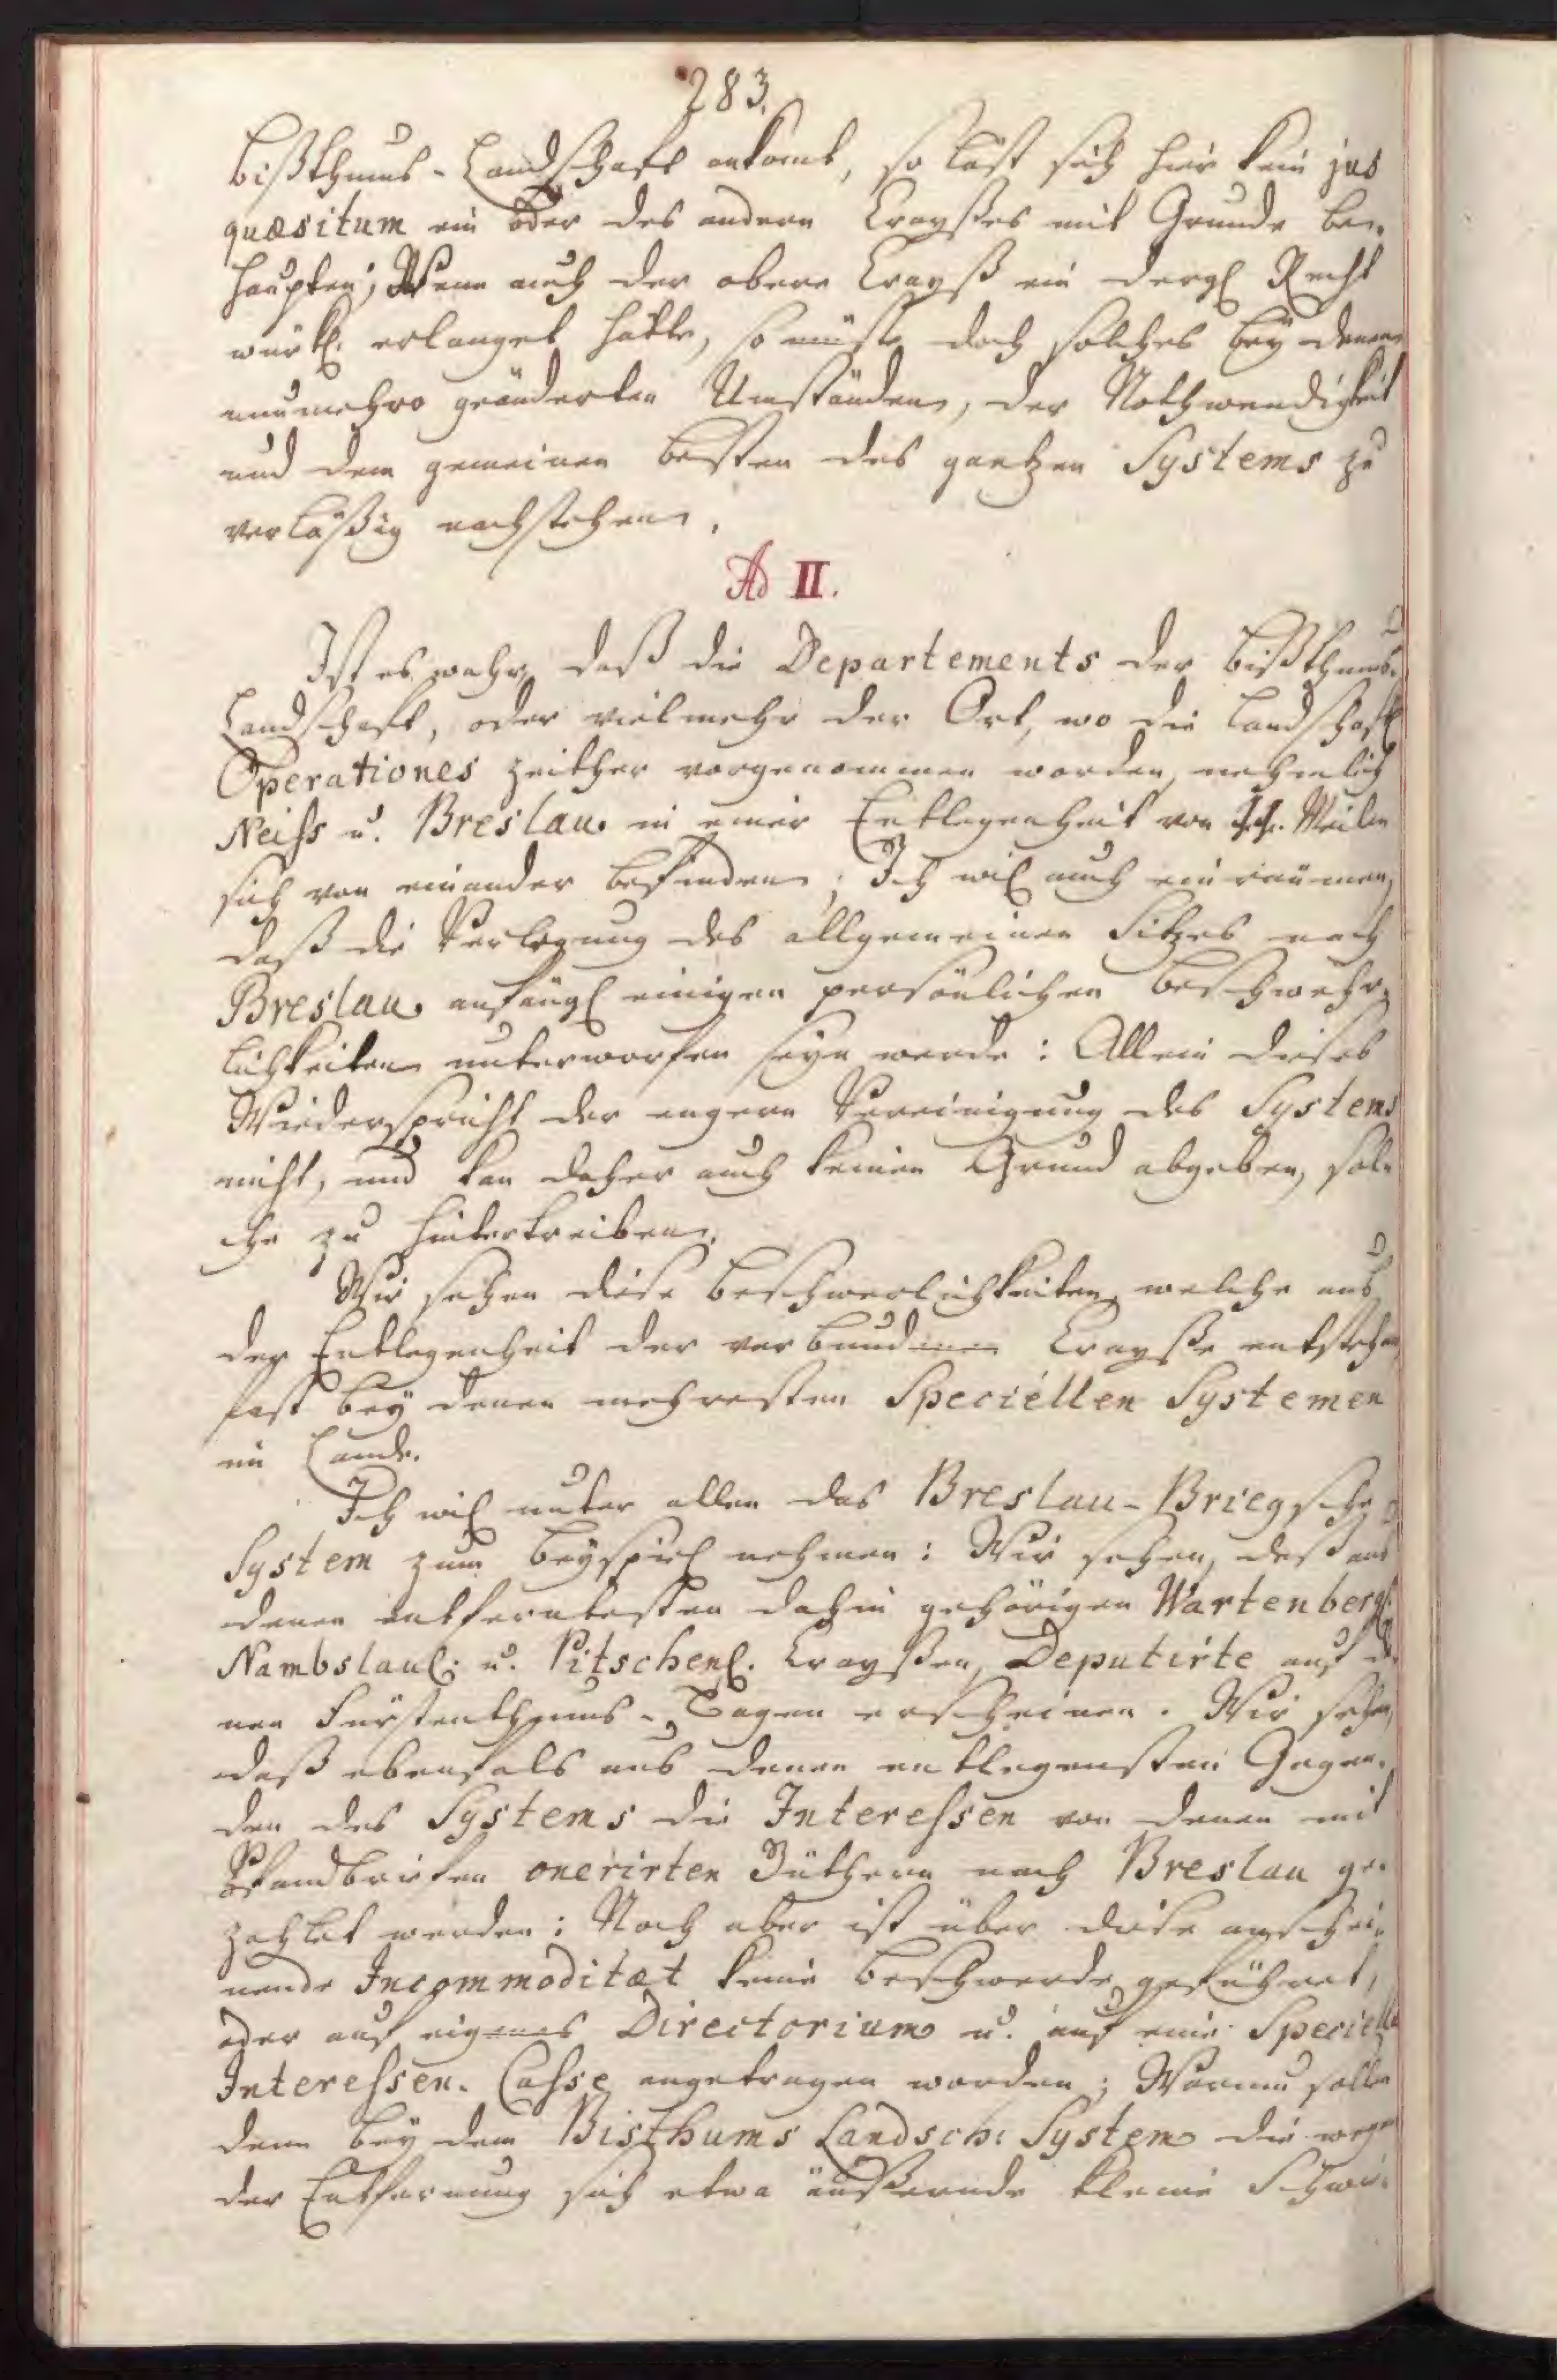 283.
Bißthums-Landschaft ankomt, so läst sich hier kein jus
quæsitum ein oder des andern Creyßes mit Grunde be-
haupten; Wenn auch der obere Creyß ein dergl. Recht
würkl. erlanget hätte, so müste doch solches bey denen
nunmehro geänderten Umständen, der Nothwendigkeit
und dem gemeinen Besten des gantzen Systems zu
verläßig nachstehen.
Ad II.
Ist es wahr, daß die Departements der Bißthums-
Landschaft, oder vielmehr der Ort, wo die Landschaftl.
Operationes zeither vorgenommen worden, nehmlich
Neiss u. Breslau in einer Entlegenheit von Meilen
sich von einander befinden; Ich will auch einräumen,
daß die Verlegung des allgemeinen Sitzes nach
Breslau anfängl. einigen persönlichen Beschwehr-
lichkeiten unterworfen seyn werde: Allein dieses
Wiederspricht der engern Vereinigung des Systems
nicht, und kan daher auch keinen Grund abgeben, sol-
che zu hintertreiben.
Wir sehen diese Beschwerlichkeiten, welche aus
der Entlegenheit der verbundenen Creyße entstehen,
fast bey denen mehresten Speciellen Systemen
im Lande.
Ich will unter allen das Breslau-Briegsche
System zum Beyspiel nehmen: Wir sehen, daß aus
denen entferntesten dahin gehörigen Wartenbergl.
Nambslaul. u. Pitschenl. Creyßen, Deputirte auf de-
nen Fürstenthums-Tagen erscheinen. Wir sehen,
daß ebenfals aus denen entlegensten Gegen-
den des Systems die Interessen von denen mit
Pfandbriefen onerirten Güthern nach Breslau ge-
zahlet werden: Noch aber ist über diese anschei-
nende Incommoditæt keine Beschwerde geführet,
oder auf eigenes Directorium u. auf eine Specielle
Interessen-Casse angetragen worden; Warum sollen
denn bey dem Bisthums Landsch: System die wegen
der Entfernung sich etwa äußernde kleine Schwie-